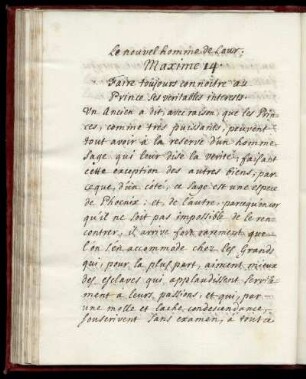 Le nouvel homme de Cour;
Maxime 14.
Faire toujours connoitre au
Prince ses veritables interests.
Un Ancien a dit, avec raison, que les Prin-
ces, comme très puissants, peuvent
tout avoir à la reserve d'un homme
sage qui leur dise la verité, faisant
cette exception des autres biens; par
ceque, d'un côté, ce sage est une espece
de Phoenix: et, de l'autre,
qu'il ne soit pas impossible de le ren-
contrer, il arrive fort rarement que
l'on s'en accommode chez les Grands
qui, pour la plus part, aiment mieux
des esclaves qui applaudissent servile-
ment à leurs passions, et qui, par
une molle et lache condescendance,
souscrivent sans examen, à tout ce